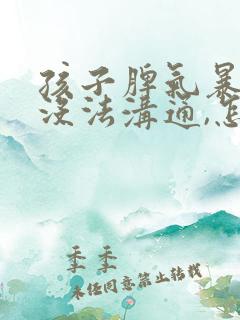 孩子脾气暴
没法溝通,怎
季季
未经同意禁止转载